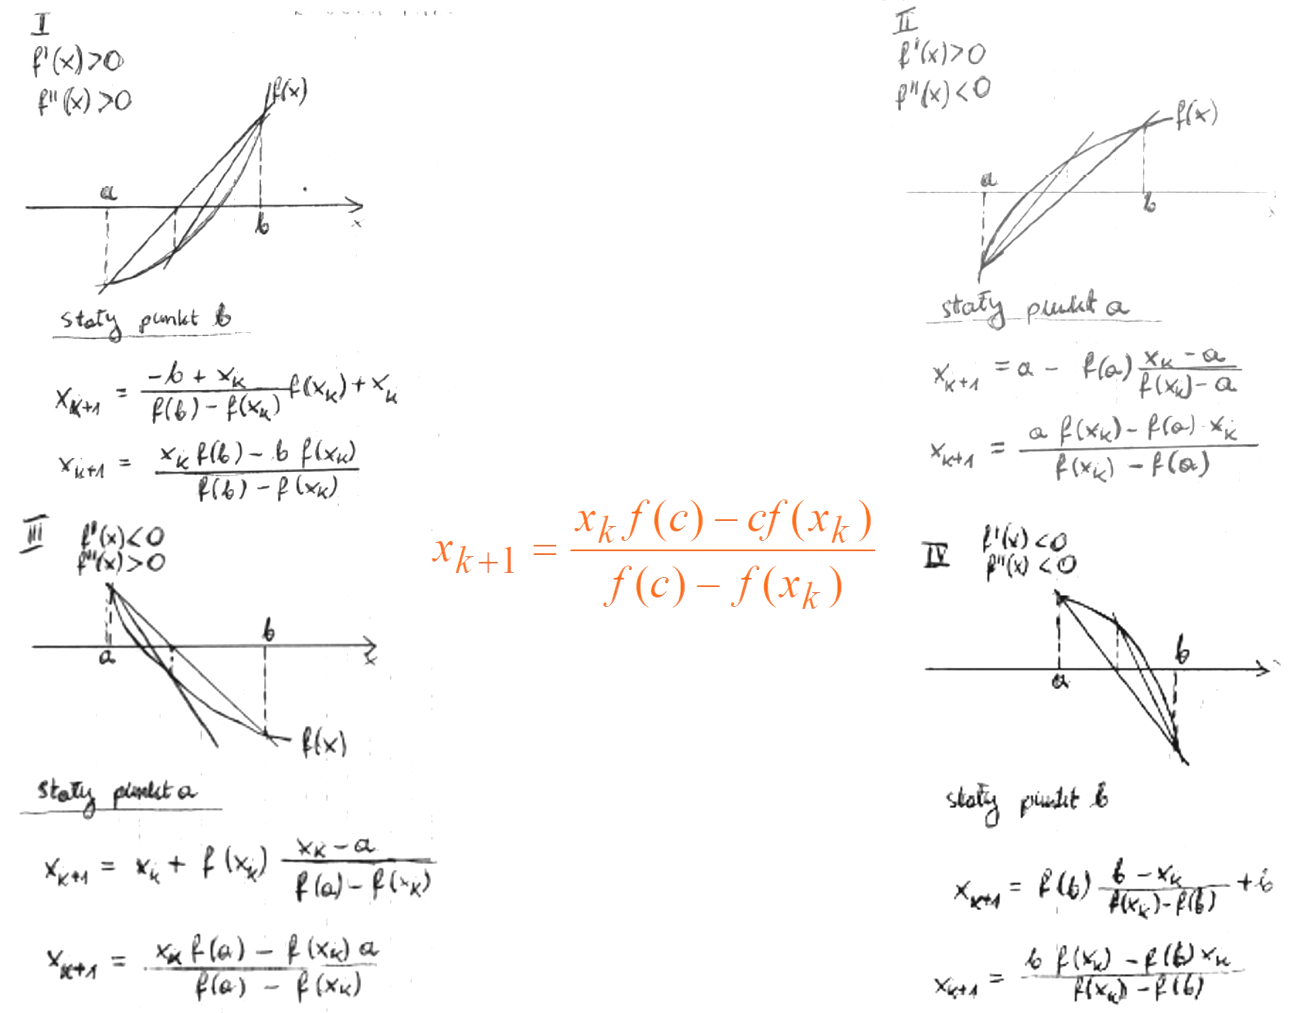 I
f'(x)>0
f''(x)>0
f(x)
a
b
x
stały punkt b
x_{k+1} = \frac{-b + x_k}{f(b) - f(x_k)} f(x_k) + x_k
x_{k+1} = \frac{x_k f(b) - b f(x_k)}{f(b) - f(x_k)}
II
f'(x)>0
f''(x)<0
f(x)
a
b
stały punkt a
x_{k+1} = a - f(a) \frac{x_k - a}{f(x_k) - a}
x_{k+1} = \frac{a f(x_k) - f(a) \cdot x_k}{f(x_k) - f(a)}
x_{k+1} = \frac{x_k f(c) - cf(x_k)}{f(c) - f(x_k)}
III
f'(x)<0
f''(x)>0
b
a
x
f(x)
stały punkt a
x_{k+1} = x_k + f(x_k) \frac{x_k - a}{f(a) - f(x_k)}
x_{k+1} = \frac{x_k f(a) - f(x_k) a}{f(a) - f(x_k)}
IV
f'(x)<0
f''(x)<0
b
a
stały punkt b
x_{k+1} = f(b) \frac{b - x_k}{f(x_k) - f(b)} + b
x_{k+1} = \frac{b f(x_k) - f(b) x_k}{f(x_k) - f(b)}